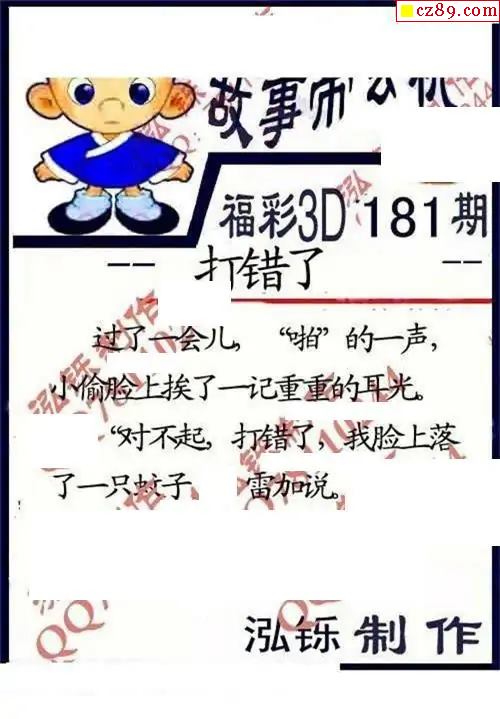 cz89.com
故事师
福彩3D 181期
-- 打错了 --
过了一会儿，“啪”的一声，
小偷脸上挨了一记重重的耳光。
“对不起，打错了，我脸上落
了一只蚊子 雷加说。
泓铄制作